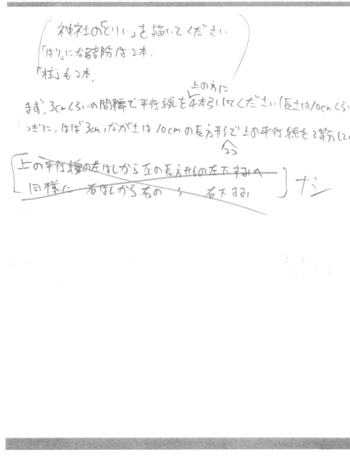 神社の「とりい」を描いてください
「はり」になる部分は2本.
「柱」も2本.
上の方に
まず、3cmくらいの間隔で平行線を4本引いてください(長さは10cmくら
つぎに、はば3cm、ながさは10cmの長方形で上の平行線を3等分して
2つ
上の平行線の左はしから左の長方形の左下すみへ
同様に 右はしから右の 〃 右下すみ
ナシ